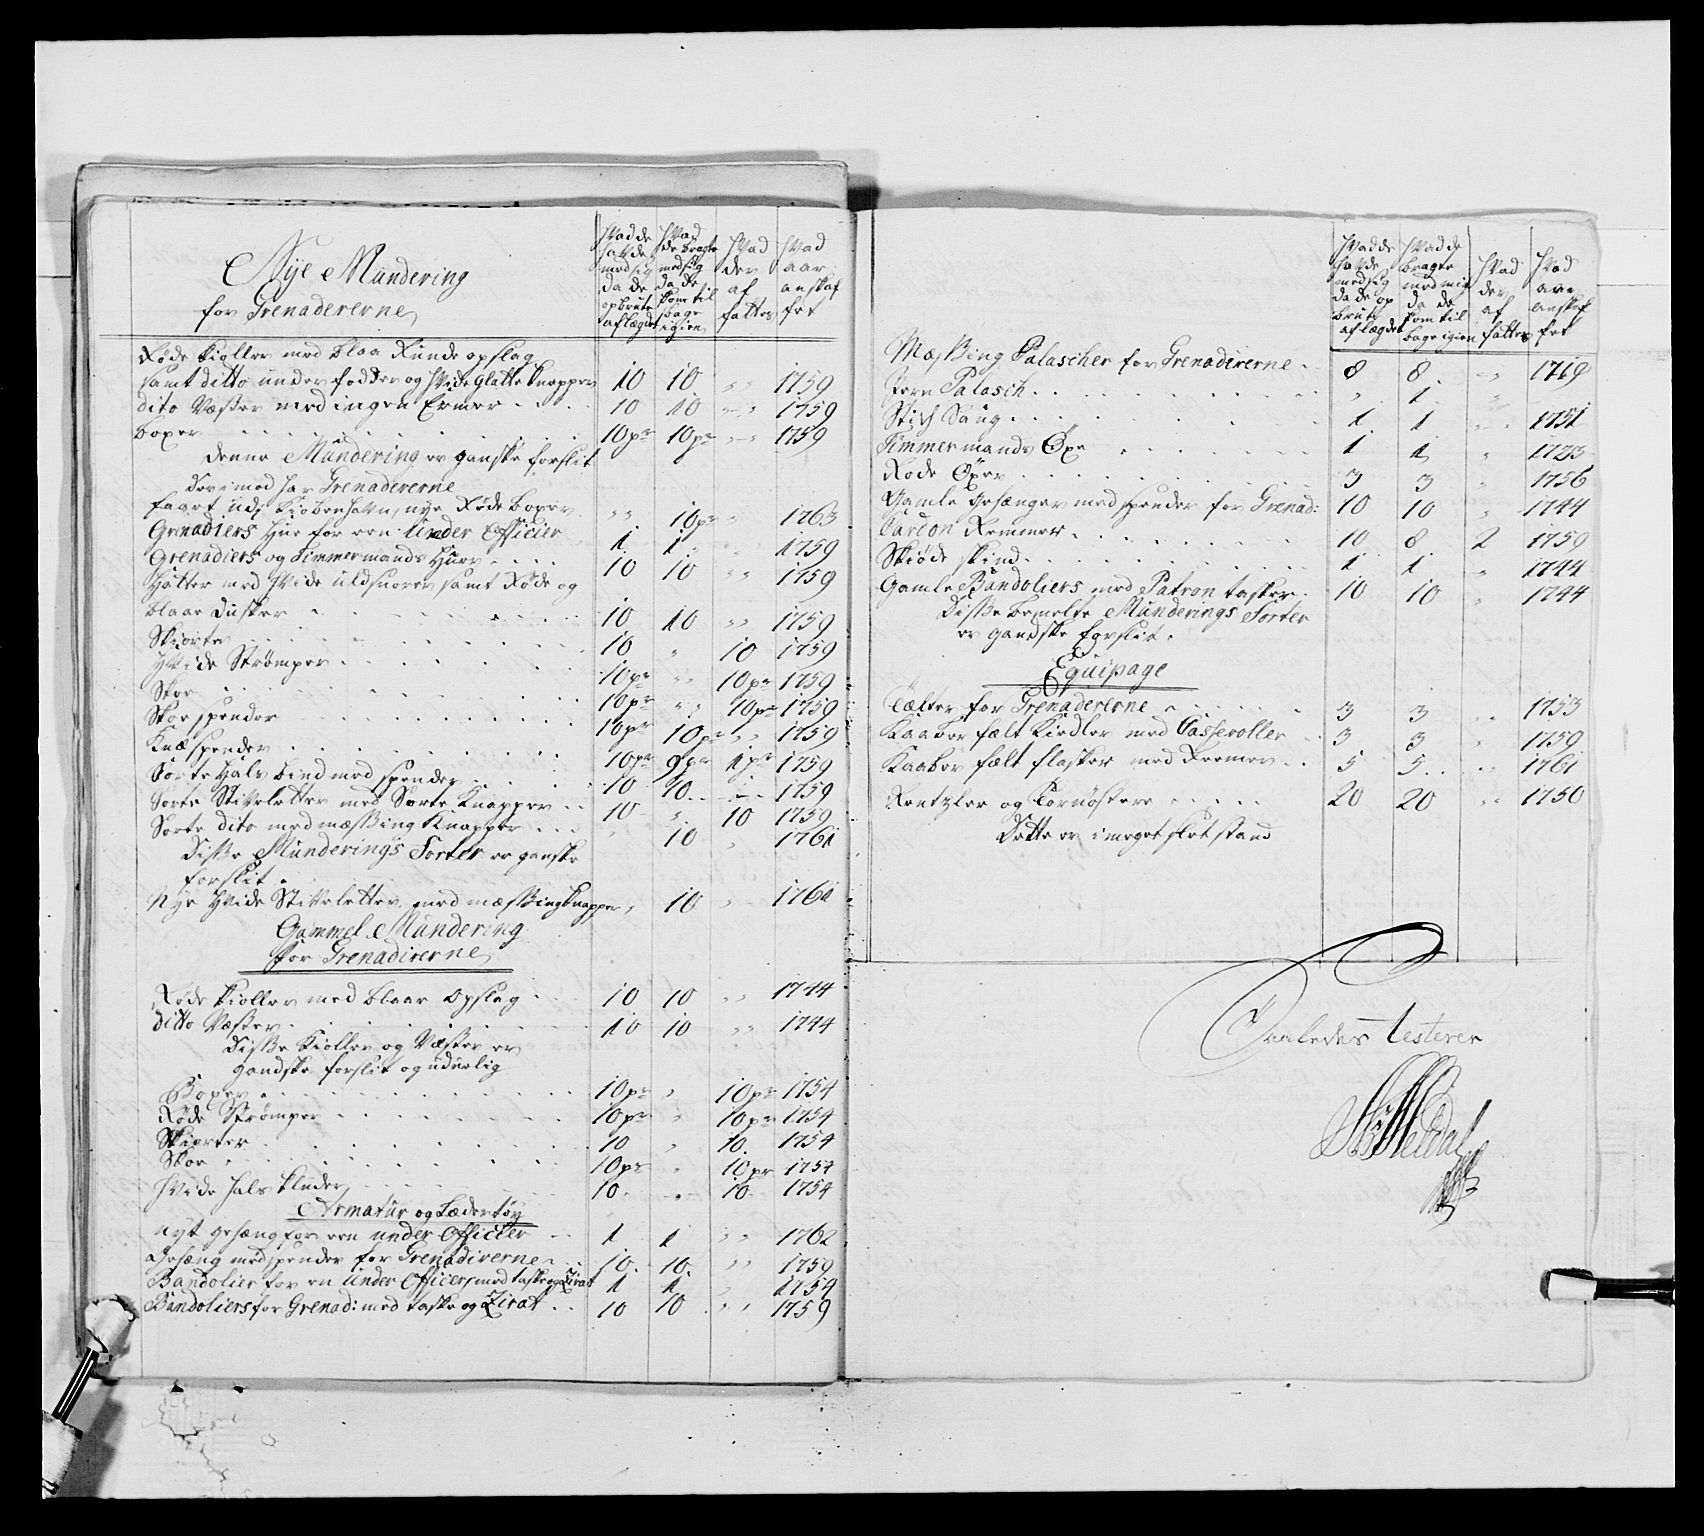 Nÿe Mündering
for Grenadererne
Hvad de hafde med sig da de opbrute aflægdet
Hvad de bragte med sig da de kom til bage igien
Hvad der af fattes
Hvad aar anskaffet
Røde Kioller med blaa Runde opslag
samt ditto under fodder og hvide glatte knapper 10 10 " " 1759
dito Væster med ingen Ermer 10 10 " " 1759
boxer 10pr 10pr " " 1759
denne Mündering er ganske forslit
derimod har Grenadererne
faaet udj Kiøbenhafn, nye Røde boxer " " 10pr " 1763
Grenadiers Hue for een Under Officier 1 1 " 1759
Grenadiers og Timmermands Huer 10 10 " " 1759
Hatter med Hvide uldsnorer samt Røde og
blaae Dusker 10 10 " " 1759
Skiorter 10 " 10 1759
Hvide Strømper 10pr " " 10pr 1759
Skoe 10pr " " 10pr 1759
Skoespender 10pr 10pr " " 1759
Knæspender 10pr 9pr 1pr 1759
Sorte Hals bind med spender 10 10 " 1759
Sorte Stiveletter med Sorte Knapper 10 " 10 1759
Sorte dito med mæssing Knapper " 10 " 1761
Disse Münderings Sorter er ganske
forslit.
Nye Hvide Stiveletter med mæssing knapper " 10 " 1761
Gammel Mündering
for Grenadirerne
Røde Kioller med blaae Opslag 10 10 " " 1744
ditto Væster 10 10 " " 1744
Disse Kioller og Væster er
gandske forslit og udüelig
Boxer 10pr " 10pr 1754
Røde Strømper 10pr " 10pr 1754
Skiorter 10 " 10 1754
Skoe 10pr " 10pr 1754
Hvide Hals kluder 10 " 10 1754
Armatür og Lædertøy
Nyt gehæng for een under Officier 1 1 " " 1762
Gehæng med spender for Grenadirerne 10 10 " " 1759
Bandolier for en Under Officer, med taske og Zirat 1 1 " 1759
Bandoliers for Grenad: med taske og Zirat 10 10 " " 1759
Hvad de hafde med sig da de opbrute aflægdet
Hvad de bragte med sig da de kom til bage igien
Hvad der af fattes
Hvad aar anskaffet
Mæssing Palascher for Grenadirerne 8 8 " 1719
Jern Palasch " 1 "
Stich Saug 1 1 " 1751
Timmermands Øxe 1 1 " 1723
Rode Øxer 3 3 " 1756
Gamle Gehænger med spender for Grenad: 10 10 " 1744
Carton Remmer 10 8 2 1759
Skiøde skind 1 1 " 1744
Gamle Bandoliers med Patron tasker 10 10 " 1744
Disse bemelte Münderings Sorter
er gandske forslit.
Equipage
Tælter for Grenadererne 3 3 " 1753
Kaaber fælt Kiedler med Casseroller 3 3 " 1759
Kaaber fælt flasker med Remmer 5 5 " 1761
Rentzler og Tornøstere 20 20 " 1750
Dette er i meget slet stand
Saaledes testerer